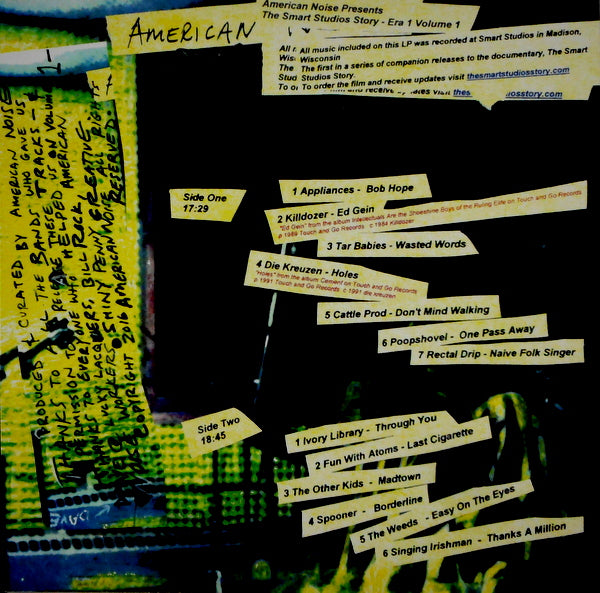 American Noise Presents
The Smart Studios Story - Era 1 Volume 1
AMERICAN
All music included on this LP was recorded at Smart Studios in Madison,
Wisconsin
The first in a series of companion releases to the documentary, The Smart
Studios Story.
To order the film and receive updates visit thesmartstudiosstory.com
Side One
17:29
1 Appliances - Bob Hope
2 Killdozer - Ed Gein
"Ed Gein" from the album Intellectuals Are the Shoeshine Boys of the Ruling Elite on Touch and Go Records
p 1989 Touch and Go Records c 1984 Killdozer
3 Tar Babies - Wasted Words
4 Die Kreuzen - Holes
"Holes" from the album Cement on Touch and Go Records
p 1991 Touch and Go Records c 1991 die kreuzen
5 Cattle Prod - Don't Mind Walking
6 Poopshovel - One Pass Away
7 Rectal Drip - Naive Folk Singer
Side Two
18:45
1 Ivory Library - Through You
2 Fun With Atoms - Last Cigarette
3 The Other Kids - Madtown
4 Spooner - Borderline
5 The Weeds - Easy On The Eyes
6 Singing Irishman - Thanks A Million
PRODUCED & CURATED BY AMERICAN NOISE
THANKS TO ALL THE BANDS WHO GAVE US
PERMISSION TO RELEASE THESE TRACKS - &
THANKS TO EVERYONE WHO HELPED US ON VOLUME 1 -
LUCKY LACQUERS, BILL ROCK, AMERICAN
SHINY PENNY CREATIVE &
COPYRIGHT 2016 AMERICAN NOISE ALL RIGHTS
RESERVED.
DAVE